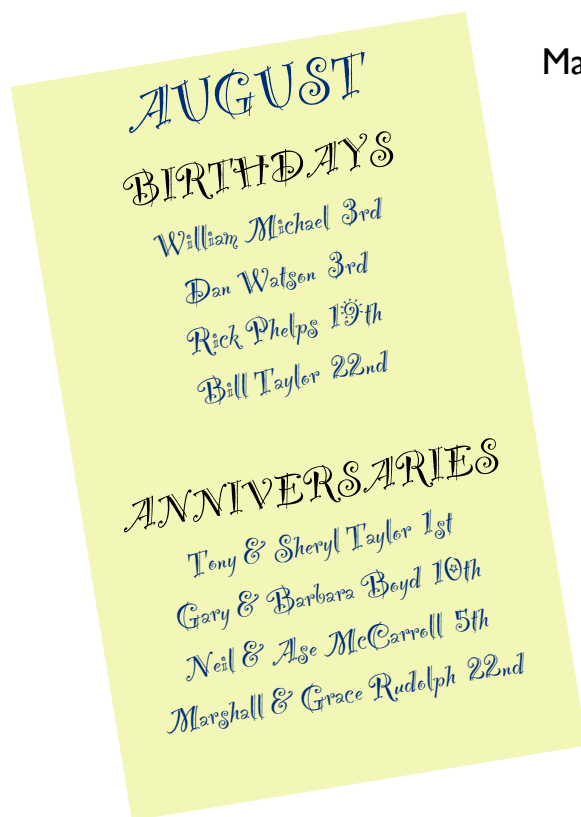 AUGUST
Ma
BIRTHDAYS
William Michael 3rd
Dan Watson 3rd
Rick Phelps 19th
Bill Taylor 22nd
ANNIVERSARIES
Tony & Sheryl Taylor 1st
Gary & Barbara Boyd 10th
Neil & Ase McCarroll 5th
Marshall & Grace Rudolph 22nd